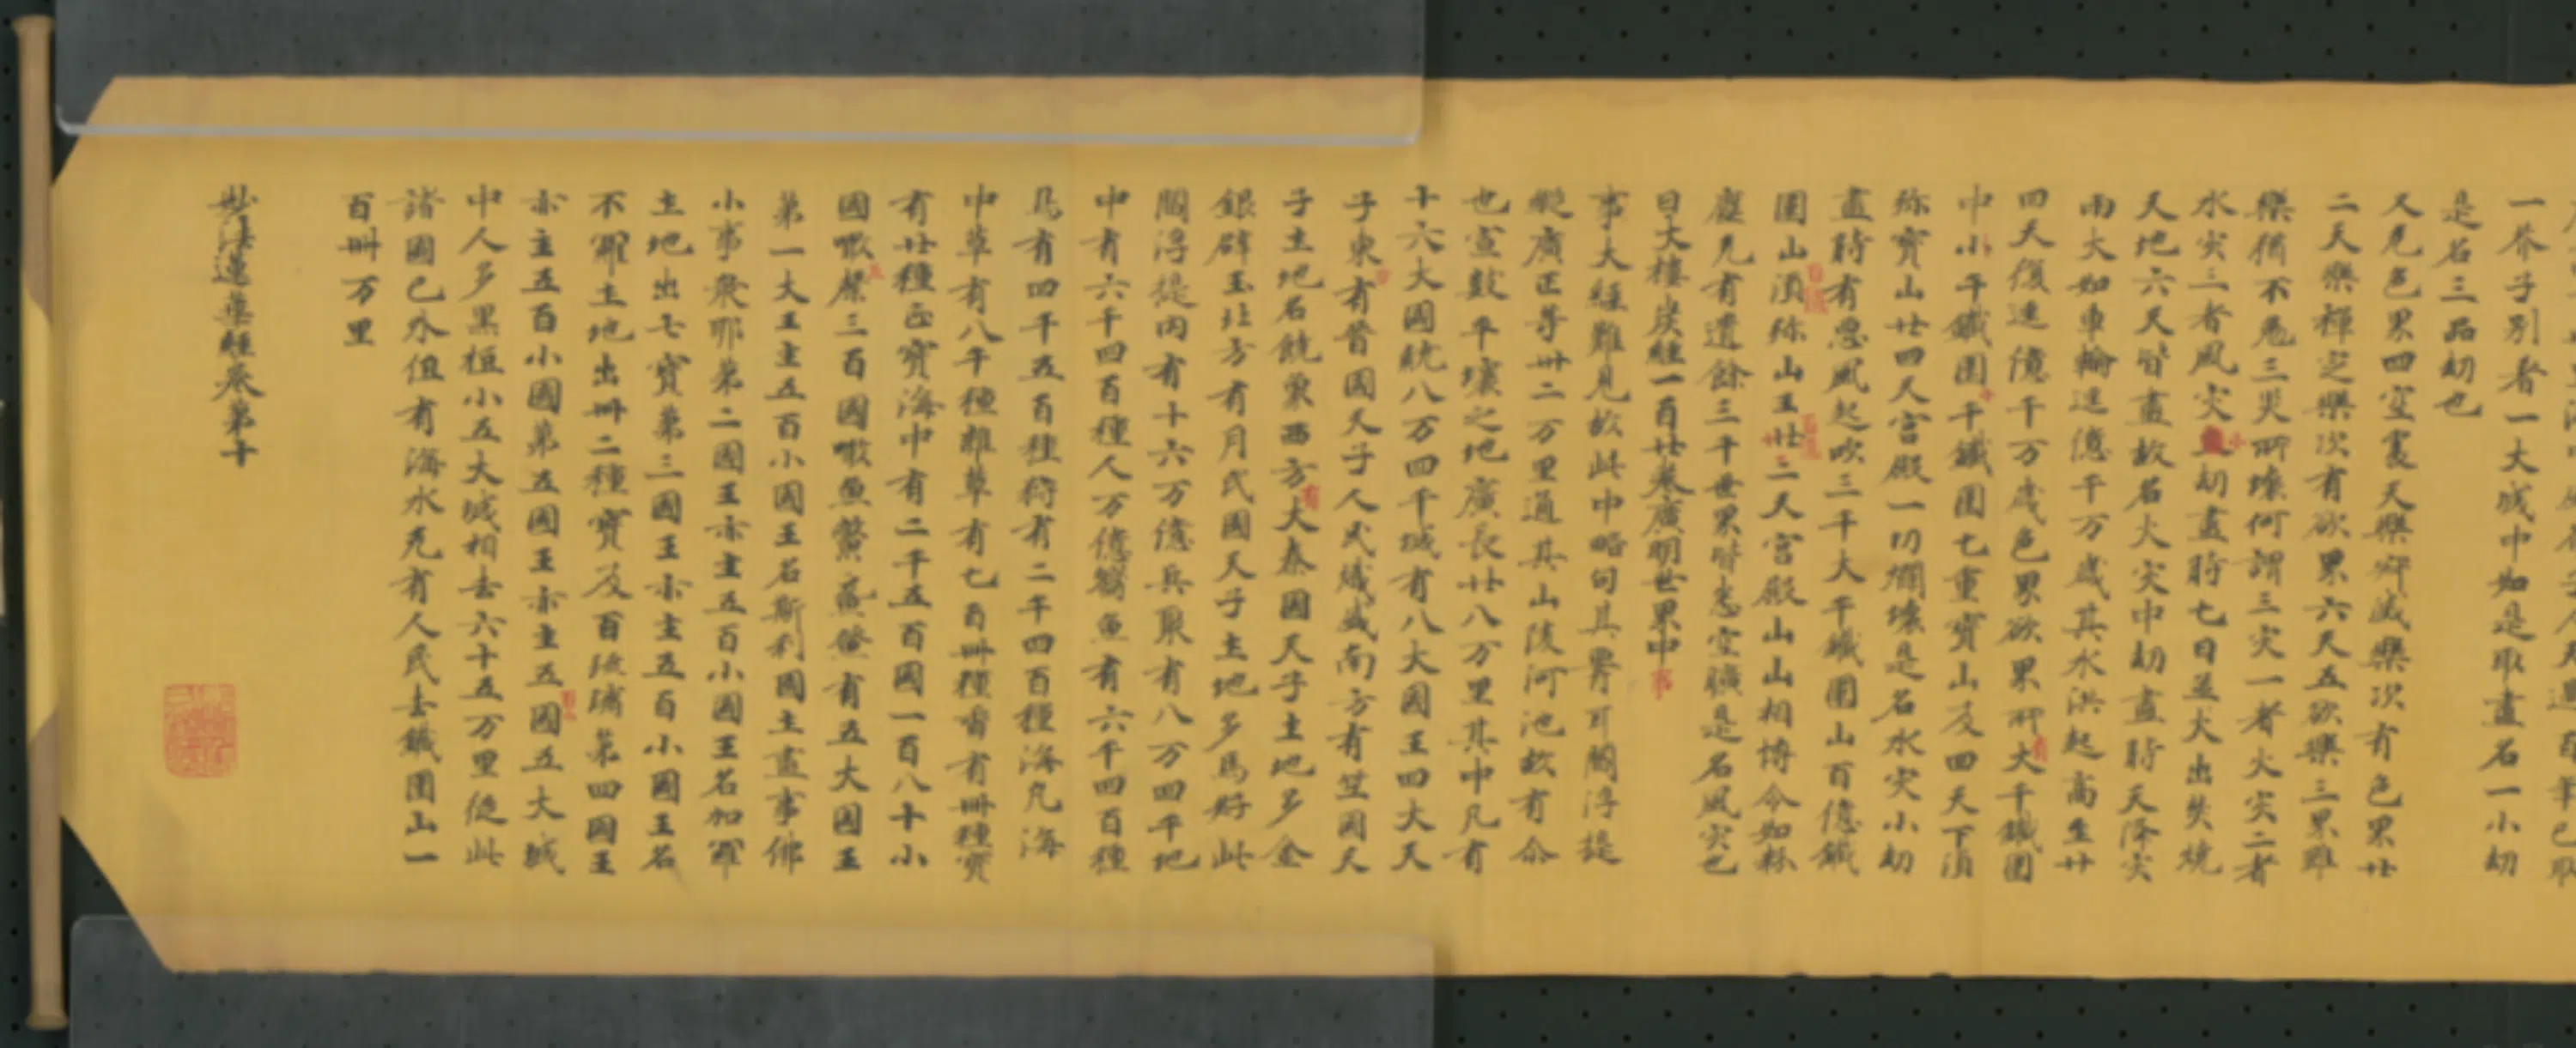 一芥子別著一大城中如是取盡名一小劫
是名三品劫也
又克色界四空處天樂癖滅樂次有色界廿
二天樂禪定樂次有欲界六天五欲樂三界雖
樂猶不免三災所壞何謂三灾一者火灾二者
水灾三者風灾劫盡時七日並火出焚燒
天地六天皆盡故名火灾中劫盡時天降灾
雨大如車輪迳億千万歲其水洪起高至廿
四天復迳億千万歲色界欲界所大千鐵圍
中小千鐵圍千鐵圍七重寶山及四天下湏
弥寶山廿四天宮殿一切爛壞是名水灾小劫
盡時有惡風起吹三千大千鐵圍山百億鐵
圍山湏弥山王廿二天宮殿山山相博令如粖
塵凡有遺餘三千世界皆悉空曠是名風灾也
曰大樓炭經一百廿卷廣明世界中事
事大經難見故此中略句其界耳閻浮提
縱廣正等卅二万里通其山陵河池故有佘
也宣鼓平壞之地廣長廿八万里其中凡有
十六大國統八万四千城有八大國王四大天
子東有晉國天子人民熾盛南方有竺國天
子土地名饒象西方大秦國天子土地多金
銀辟玉北方有月氏國天子土地多馬好此
閻浮提內有十六万億兵聚有八万四千地
中有六千四百種人万億嚮魚有六千四百種
鳥有四千五百種獸有二千四百種海凡海
中草有八千種雜草有七百卌種香有卌種寶
有廿種正寶海中有二千五百國一百八十小
國噉桼三百國噉魚鱉黿鼉有五大國王
第一大王主五百小國王名斯利國主盡事佛
小事衆耶第二國王亦主五百小國王名加羅
土地出七寶第三國王亦主五百小國王名
不羅土地出卌二種寶及百琉璃第四國王
亦主五百小國第五國王亦主五國五大城
中人多黑桓小五大城相去六十五万里從此
諸國已外但有海水凡有人民去鐵圍山一
百卌万里
妙法蓮華經卷第十